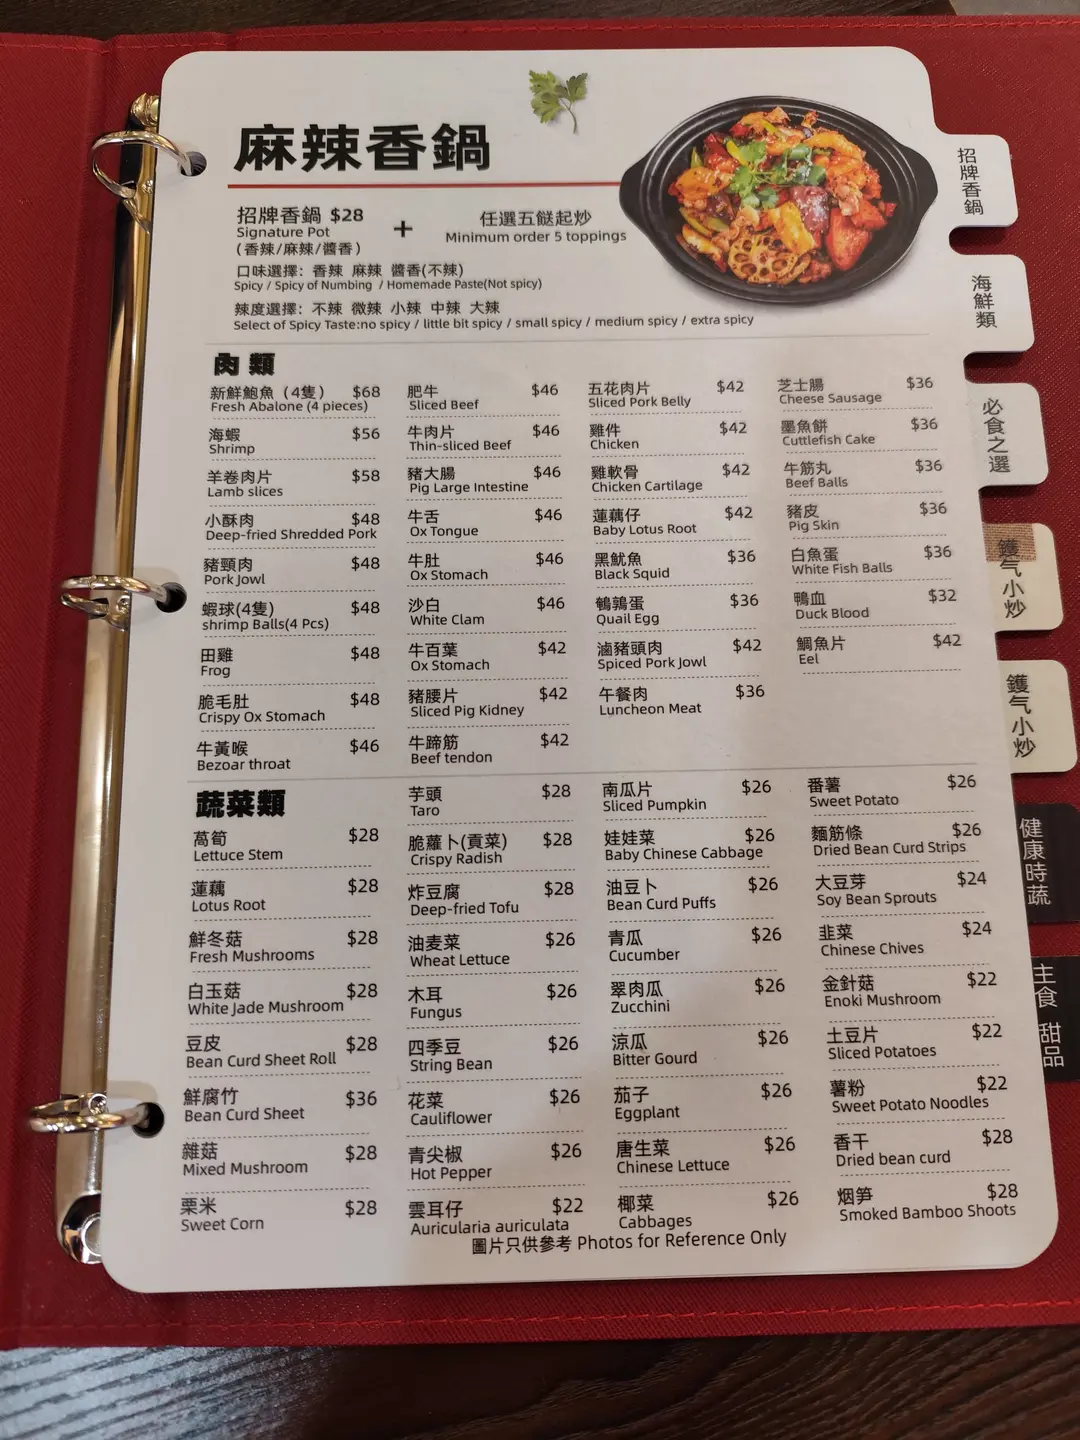 麻辣香鍋
招牌香鍋 $28
Signature Pot
(香辣/麻辣/醬香)
+
任選五餸起炒
Minimum order 5 toppings
口味選擇：香辣 麻辣 醬香(不辣)
Spicy / Spicy of Numbing / Homemade Paste(Not spicy)
辣度選擇：不辣 微辣 小辣 中辣 大辣
Select of Spicy Taste:no spicy / little bit spicy / small spicy / medium spicy / extra spicy
肉類
新鮮鮑魚（4隻） $68
Fresh Abalone (4 pieces)
海蝦 $56
Shrimp
羊卷肉片 $58
Lamb slices
小酥肉 $48
Deep-fried Shredded Pork
豬頸肉 $48
Pork Jowl
蝦球(4隻) $48
shrimp Balls(4 Pcs)
田雞 $48
Frog
脆毛肚 $48
Crispy Ox Stomach
牛黃喉 $46
Bezoar throat
肥牛 $46
Sliced Beef
牛肉片 $46
Thin-sliced Beef
豬大腸 $46
Pig Large Intestine
牛舌 $46
Ox Tongue
牛肚 $46
Ox Stomach
沙白 $46
White Clam
牛百葉 $42
Ox Stomach
豬腰片 $42
Sliced Pig Kidney
牛蹄筋 $42
Beef tendon
五花肉片 $42
Sliced Pork Belly
雞件 $42
Chicken
雞軟骨 $42
Chicken Cartilage
蓮藕仔 $42
Baby Lotus Root
黑魷魚 $36
Black Squid
鵪鶉蛋 $36
Quail Egg
滷豬頭肉 $42
Spiced Pork Jowl
午餐肉 $36
Luncheon Meat
芝士腸 $36
Cheese Sausage
墨魚餅 $36
Cuttlefish Cake
牛筋丸 $36
Beef Balls
豬皮 $36
Pig Skin
白魚蛋 $36
White Fish Balls
鴨血 $32
Duck Blood
鯛魚片 $42
Eel
蔬菜類
萵筍 $28
Lettuce Stem
蓮藕 $28
Lotus Root
鮮冬菇 $28
Fresh Mushrooms
白玉菇 $28
White Jade Mushroom
豆皮 $28
Bean Curd Sheet Roll
鮮腐竹 $36
Bean Curd Sheet
雜菇 $28
Mixed Mushroom
栗米 $28
Sweet Corn
芋頭 $28
Taro
脆蘿卜(貢菜) $28
Crispy Radish
炸豆腐 $28
Deep-fried Tofu
油麦菜 $26
Wheat Lettuce
木耳 $26
Fungus
四季豆 $26
String Bean
花菜 $26
Cauliflower
青尖椒 $26
Hot Pepper
雲耳仔 $22
Auricularia auriculata
南瓜片 $26
Sliced Pumpkin
娃娃菜 $26
Baby Chinese Cabbage
油豆卜 $26
Bean Curd Puffs
青瓜 $26
Cucumber
翠肉瓜 $26
Zucchini
涼瓜 $26
Bitter Gourd
茄子 $26
Eggplant
唐生菜 $26
Chinese Lettuce
椰菜 $26
Cabbages
番薯 $26
Sweet Potato
麵筋條 $26
Dried Bean Curd Strips
大豆芽 $24
Soy Bean Sprouts
韭菜 $24
Chinese Chives
金針菇 $22
Enoki Mushroom
土豆片 $22
Sliced Potatoes
薯粉 $22
Sweet Potato Noodles
香干 $28
Dried bean curd
烟笋 $28
Smoked Bamboo Shoots
圖片只供參考 Photos for Reference Only
招牌香鍋
海鮮類
必食之選
鑊气小炒
鑊气小炒
健康時蔬
主食 甜品